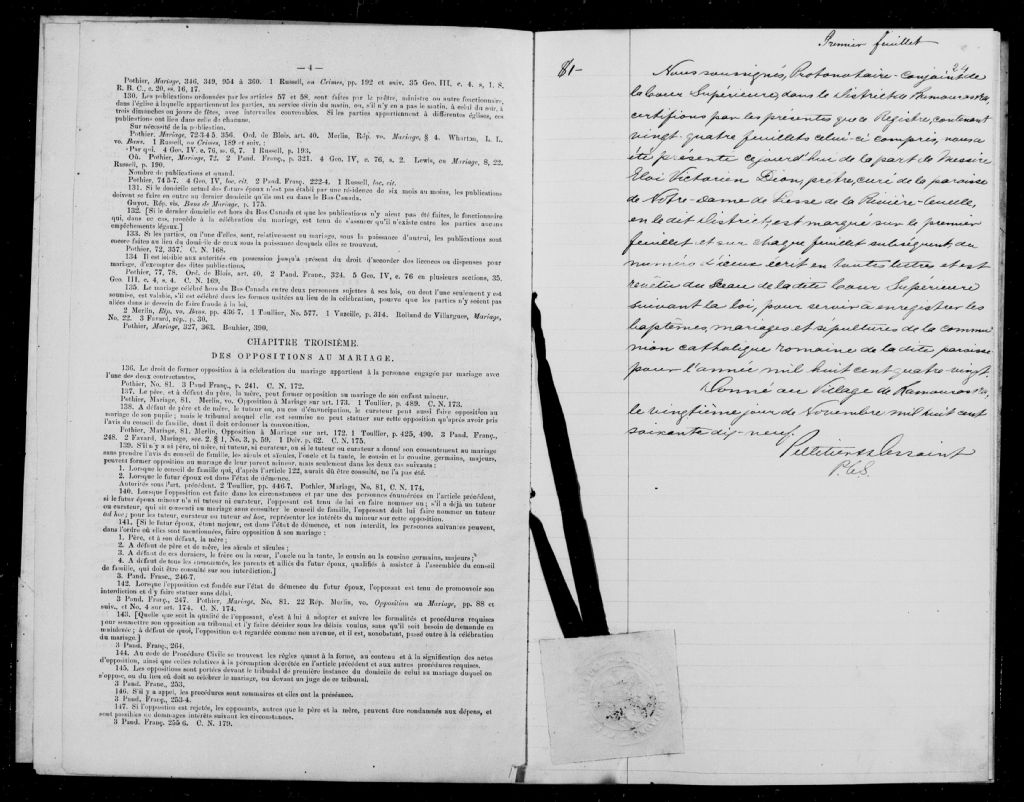 — 4 —
Pothier, Mariage, 346, 349, 954 à 360. 1 Russell, on Crimes, pp. 192 et suiv. 35 Geo. III, c. 4. s, 1. S.
R. B. C., c. 20, ss. 16, 17.
130. Les publications ordonnées par les articles 57 et 58, sont faites par le prêtre, ministre ou autre fonctionnaire,
dans l'église à laquelle appartiennent les parties, au service divin du matin, ou, s'il n'y en a pas le matin, à celui du soir, à
trois dimanches ou jours de fêtes, avec intervalles convenables. Si les parties appartiennent à différentes églises, ces
publications ont lieu dans celle de chacune.
Sur nécessité de la publication.
Pothier, Mariage, 72-3-4 5, 356. Ord. de Blois, art. 40. Merlin, Rép. vo. Mariage, § 4. Wharton, L. L.
vo. Bans. 1 Russell, on Crimes, 189 et suiv. :
Par qui. 4 Geo. IV, c. 76, ss. 6, 7. 1 Russell, p. 193,
Où. Pothier, Mariage, 72. 2 Pand. Franç., p. 321. 4 Geo, IV, c. 76, s. 2. Lewis, on Mariage, 8, 22,
Russell, p. 190.
Nombre de publications et quand.
Pothier, 74 5-7. 4 Geo. IV, loc. cit. 2 Pand. Franç. 222-4. 1 Russell, loc. cit.
131. Si le domicile actuel des futurs époux n'est pas établi par une résidence de six mois au moins, les publications
doivent se faire en outre au dernier domicile qu'ils ont eu dans le Bas-Canada.
Guyot, Rép. vis. Bans de Mariage, p. 175.
132. [Si le dernier domicile est hors du Bas Canada et que les publications n'y aient pas été faites, le fonctionnaire
qui, dans ce cas, procède à la célébration du mariage, est tenu de s'assurer qu'il n'existe entre les parties aucuns
empêchements légaux.]
133. Si les parties, ou l'une d'elles, sont, relativement au mariage, sous la puissance d'autrui, les publications sont
encore faites au lieu du domicile de ceux sous la puissance desquels elles se trouvent.
Pothier, 72, 357. C. N. 168.
134 Il est loisible aux autorités en possession jusqu'à présent du droit d'accorder des licences ou dispenses pour
mariage, d'exempter des dites publications.
Pothier, 77, 78. Ord. de Blois, art. 40. 2 Pand. Franc., 324. 5 Geo. IV, c. 76 en plusieurs sections, 35,
Geo. III, c. 4, s. 4. C. N. 169.
135. Le mariage célébré hors du Bas-Canada entre deux personnes sujettes à ses lois, ou dont l'une seulement y est
soumise, est valable, s'il est célébré dans les formes usitées au lieu de la célébration, pourvu que les parties n'y soient pas
allées dans le dessein de faire fraude à la loi.
2 Merlin, Rép. vo. Bans. pp. 436-7. 1 Toullier, No. 577. 1 Vazeille, p. 314. Rolland de Villargues, Mariage,
No. 22. 3 Favard, rép., p. 30.
Pothier, Mariage, 327, 363. Bouhier, 390.
CHAPITRE TROISIÈME.
DES OPPOSITIONS AU MARIAGE.
136. Le droit de former opposition à la célébration du mariage appartient à la personne engagée par mariage avec
l'une des deux contractantes.
Pothier, No. 81. 3 Pand Franç., p. 241. C. N. 172.
137. Le père, et à défaut du père, la mère, peut former opposition au mariage de son enfant mineur.
Pothier, Mariage, 81. Merlin, vo. Opposition à Mariage sur art. 173. 1 Toullier, p. 489. C. N. 173.
138. A défaut de père et de mère, le tuteur ou, au cas d'émancipation, le curateur peut aussi faire opposition au
mariage de son pupile ; mais le tribunal auquel elle est soumise ne peut statuer sur cette opposition qu'après avoir pris
l'avis du conseil de famille, dont il doit ordonner la convocation.
Pothier, Mariage, 81. Merlin, Opposition à Mariage sur art. 172. 1 Toullier, p. 425, 490. 3 Pand. Franç.,
248. 2 Favard, Mariage, sec. 2. § 1, No. 3, p. 59. 1 Delv. p. 62. C. N. 175.
139. S'il n'y a ni père, ni mère, ni tuteur, ni curateur, ou si le tuteur ou curateur a donné son consentement au mariage
sans prendre l'avis du conseil de famille, les aïeuls et aïeules, l'oncle et la tante, le cousin et la cousine germains, majeurs,
peuvent former opposition au mariage de leur parent mineur, mais seulement dans les deux cas suivants :
1. Lorsque le conseil de famille qui, d'après l'article 122, aurait dû être consulté, ne l'a pas été.
2. Lorsque le futur époux est dans l'état de démence.
Autorités sous l'art. précédent. 2 Toullier, pp. 446-7. Pothier, Mariage, No. 81, C. N. 174.
140. Lorsque l'opposition est faite dans les circonstances et par une des personnes énumérées en l'article précédent,
si le futur époux mineur n'a ni tuteur ni curateur, l'opposant est tenu de lui en faire nommer un ; s'il a déjà un tuteur
ou curateur, qui ait consenti au mariage sans consulter le conseil de famille, l'opposant doit lui faire nommer un tuteur
ad hoc ; pour les tuteur, curateur ou tuteur ad hoc, représenter les intérêts du mineur sur cette opposition.
141. [Si le futur époux, étant majeur, est dans l'état de démence, et non interdit, les personnes suivantes peuvent,
dans l'ordre où elles sont mentionnées, faire opposition à son mariage :
1. Père, et à son défaut, la mère ;
2. A défaut de père et de mère, les aïeuls et aïeules ;
3. A défaut de ces derniers, le frère ou la sœur, l'oncle ou la tante, le cousin ou la cousine germains, majeurs ;
4. A défaut de tous les susnommés, les parents et alliés du futur époux, qualifiés à assister à l'assemblée du conseil
de famille, qui doit être consulté sur son interdiction.]
3. Pand. Franc., 246-7.
142. Lorsque l'opposition est fondée sur l'état de démence du futur époux, l'opposant est tenu de promouvoir son
interdiction et d'y faire statuer sans délai.
3 Pand. Franç., 247. Pothier, Mariage, No. 81. 22 Rép. Merlin, vo. Opposition au Mariage, pp. 88 et
suiv., et No, 4 sur art. 174. C. N. 174.
143. [Quelle que soit la qualité de l'opposant, c'est à lui à adopter et suivre les formalités et procédures requises
pour soumettre son opposition au tribunal et l'y faire décider sous les délais voulus, sans qu'il soit besoin de demande en
mainlevée ; à défaut de quoi, l'opposition est regardée comme non avenue, et il est, nonobstant, passé outre à la célébration
du mariage.]
3 Pand. Franç., 264,
144. Au code de Procédure Civile se trouvent les règles quant à la forme, au contenu et à la signification des actes
d'opposition, ainsi que celles relatives à la péremption décrétée en l'article précédent et aux autres procédures requises.
145. Les oppositions sont portées devant le tribunal de première instance du domicile de celui au mariage duquel on
s'oppose, ou du lieu où doit se célébrer le mariage, ou devant un juge de ce tribunal.
3 Pand. Franc., 253,
146. S'il y a appel, les procédures sont sommaires et elles ont la préséance.
3 Pand. Franç., 253-4.
147. Si l'opposition est rejetée, les opposants, autres que le père et la mère, peuvent être condamnés aux dépens, et
sont passibles de dommages-intérêts suivant les circonstances.
3 Pand. Franç. 255 6. C. N. 179.
Premier feuillet
24
81-
Nous soussignés, Protonotaire-conjoint de
la Cour Supérieure, dans le District de Kamouraska,
certifions par les présentes que ce Registre, contenant
vingt-quatre feuillets celui-ci compris, nous a
été présenté ce jourd'hui de la part de Messire
Eloi Victorien Dion, prêtre, curé de la paroisse
de Notre-Dame de Liesse de la Rivière-Ouelle,
en le dit District, est marqué sur le premier
feuillet et sur chaque feuillet subséquent, du
numéro d'iceux écrit en toutes lettres et est
revêtu du Sceau de la dite Cour Supérieure
suivant la loi, pour servir à enregistrer les
baptêmes, mariages et sépultures de la commu
nion catholique romaine de la dite paroisse
pour l'année mil huit cent quatre-vingt.
Donné au Village de Kamouraska,
le vingtième jour de Novembre mil huit cent
soixante dix-neuf.
Pelletier & Dessaint
P.C.S.